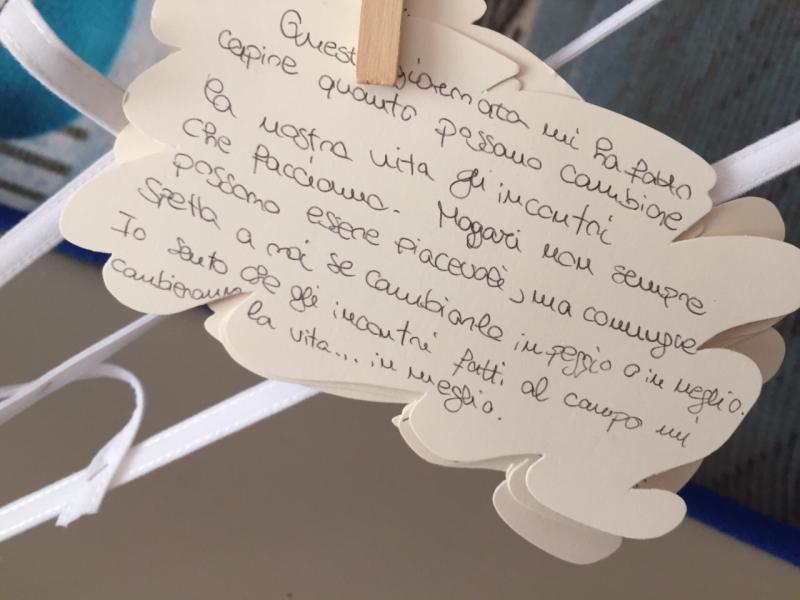 Quest giornata mi ha fatto
capire quanto possano cambiare
la nostra vita gli incontri
che facciamo. Magari non sempre
possono essere piacevoli, ma comunque
spetta a noi se cambiarla in peggio o in meglio.
Io sento che gli incontri fatti al campo mi
cambieranno la vita... in meglio.